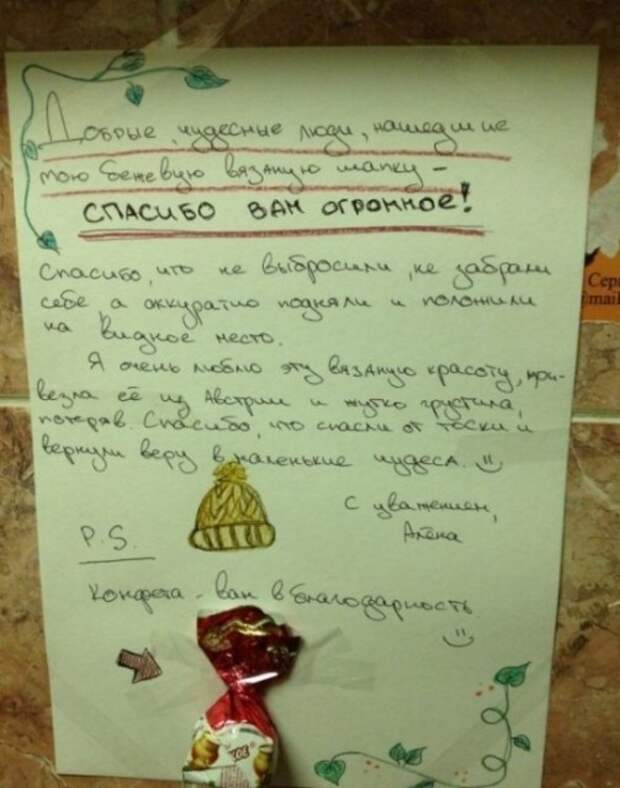 Добрые, чудесные люди, нашедшие
мою бежевую вязаную шапку -
СПАСИБО ВАМ ОГРОМНОЕ!
Спасибо, что не выбросили, не забрали
себе, а аккуратно подняли и положили
на видное место.
Я очень люблю эту вязаную красоту, при-
везла её из Австрии и жутко грустила,
потеряв. Спасибо, что спасли от тоски и
вернули веру в маленькие чудеса.
С уважением,
Алёна
P.S.
Конфета - вам в благодарность
Серг
Email